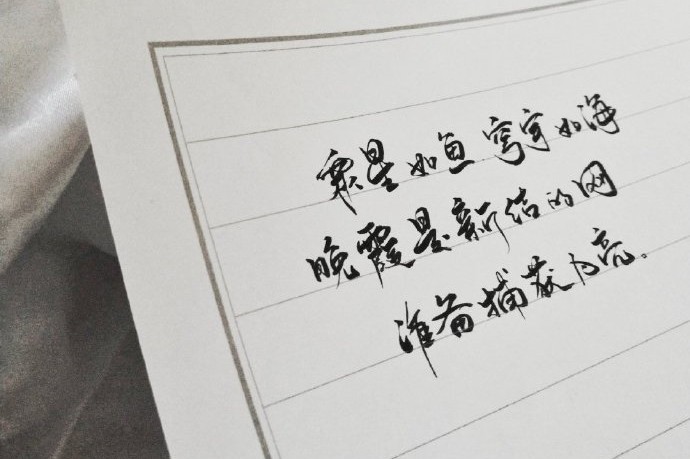 繁星如鱼 穹宇如海
晚霞是新结的网
准备捕获月亮。